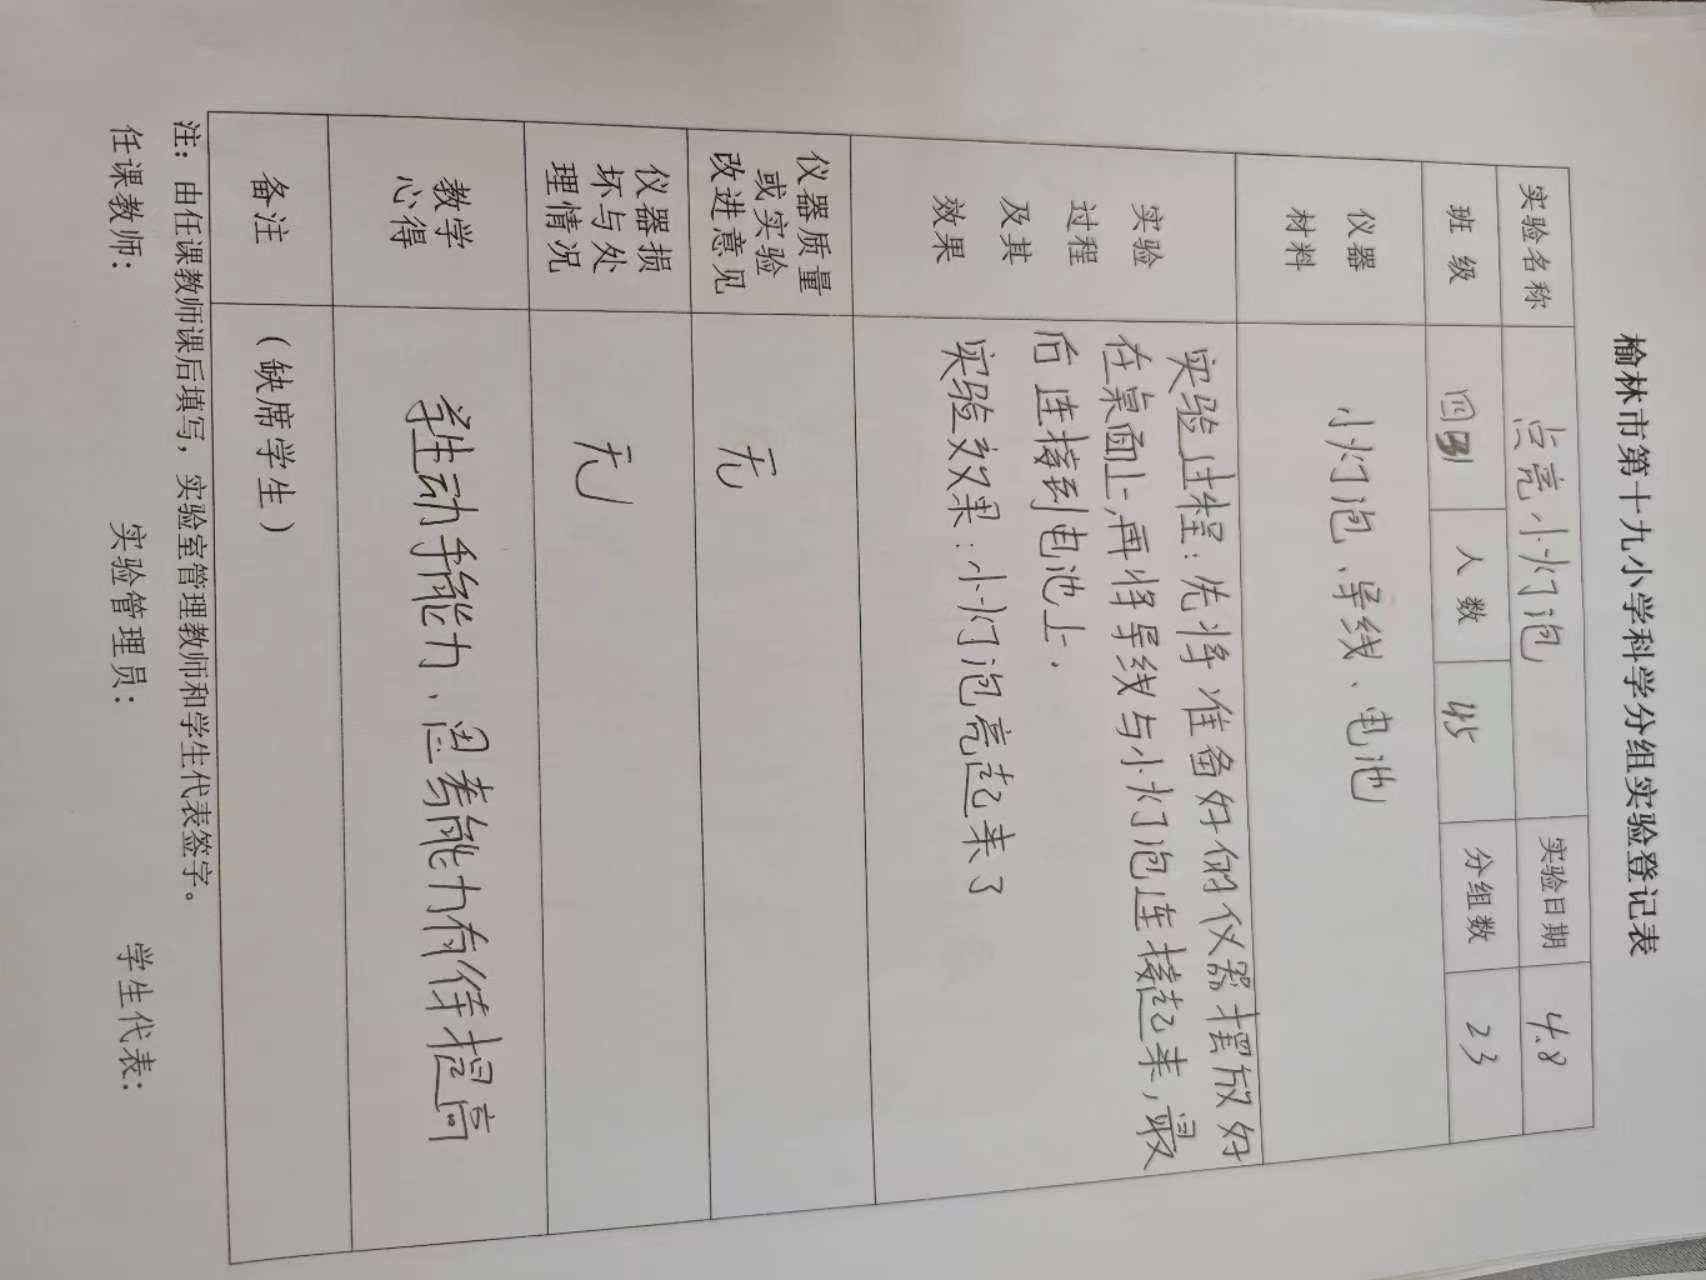 榆林市第十九小学科学分组实验登记表
实验名称 点亮小灯泡 实验日期 4.8
班 级 四 人 数 45 分组数 23
仪器
材料
小灯泡、导线、电池
实验
过程
及其
效果
实验过程：先将准备好的仪器摆放好
在桌面上，再将导线与小灯泡连接起来，最
后连接到电池上．
实验效果：小灯泡亮起来了
仪器质量
或实验
改进意见
无
仪器损
坏与处
理情况
无
教学
心得
学生动手能力、思考能力有待提高
备注 （缺席学生）
注：由任课教师课后填写，实验室管理教师和学生代表签字。
任课教师： 实验管理员： 学生代表：